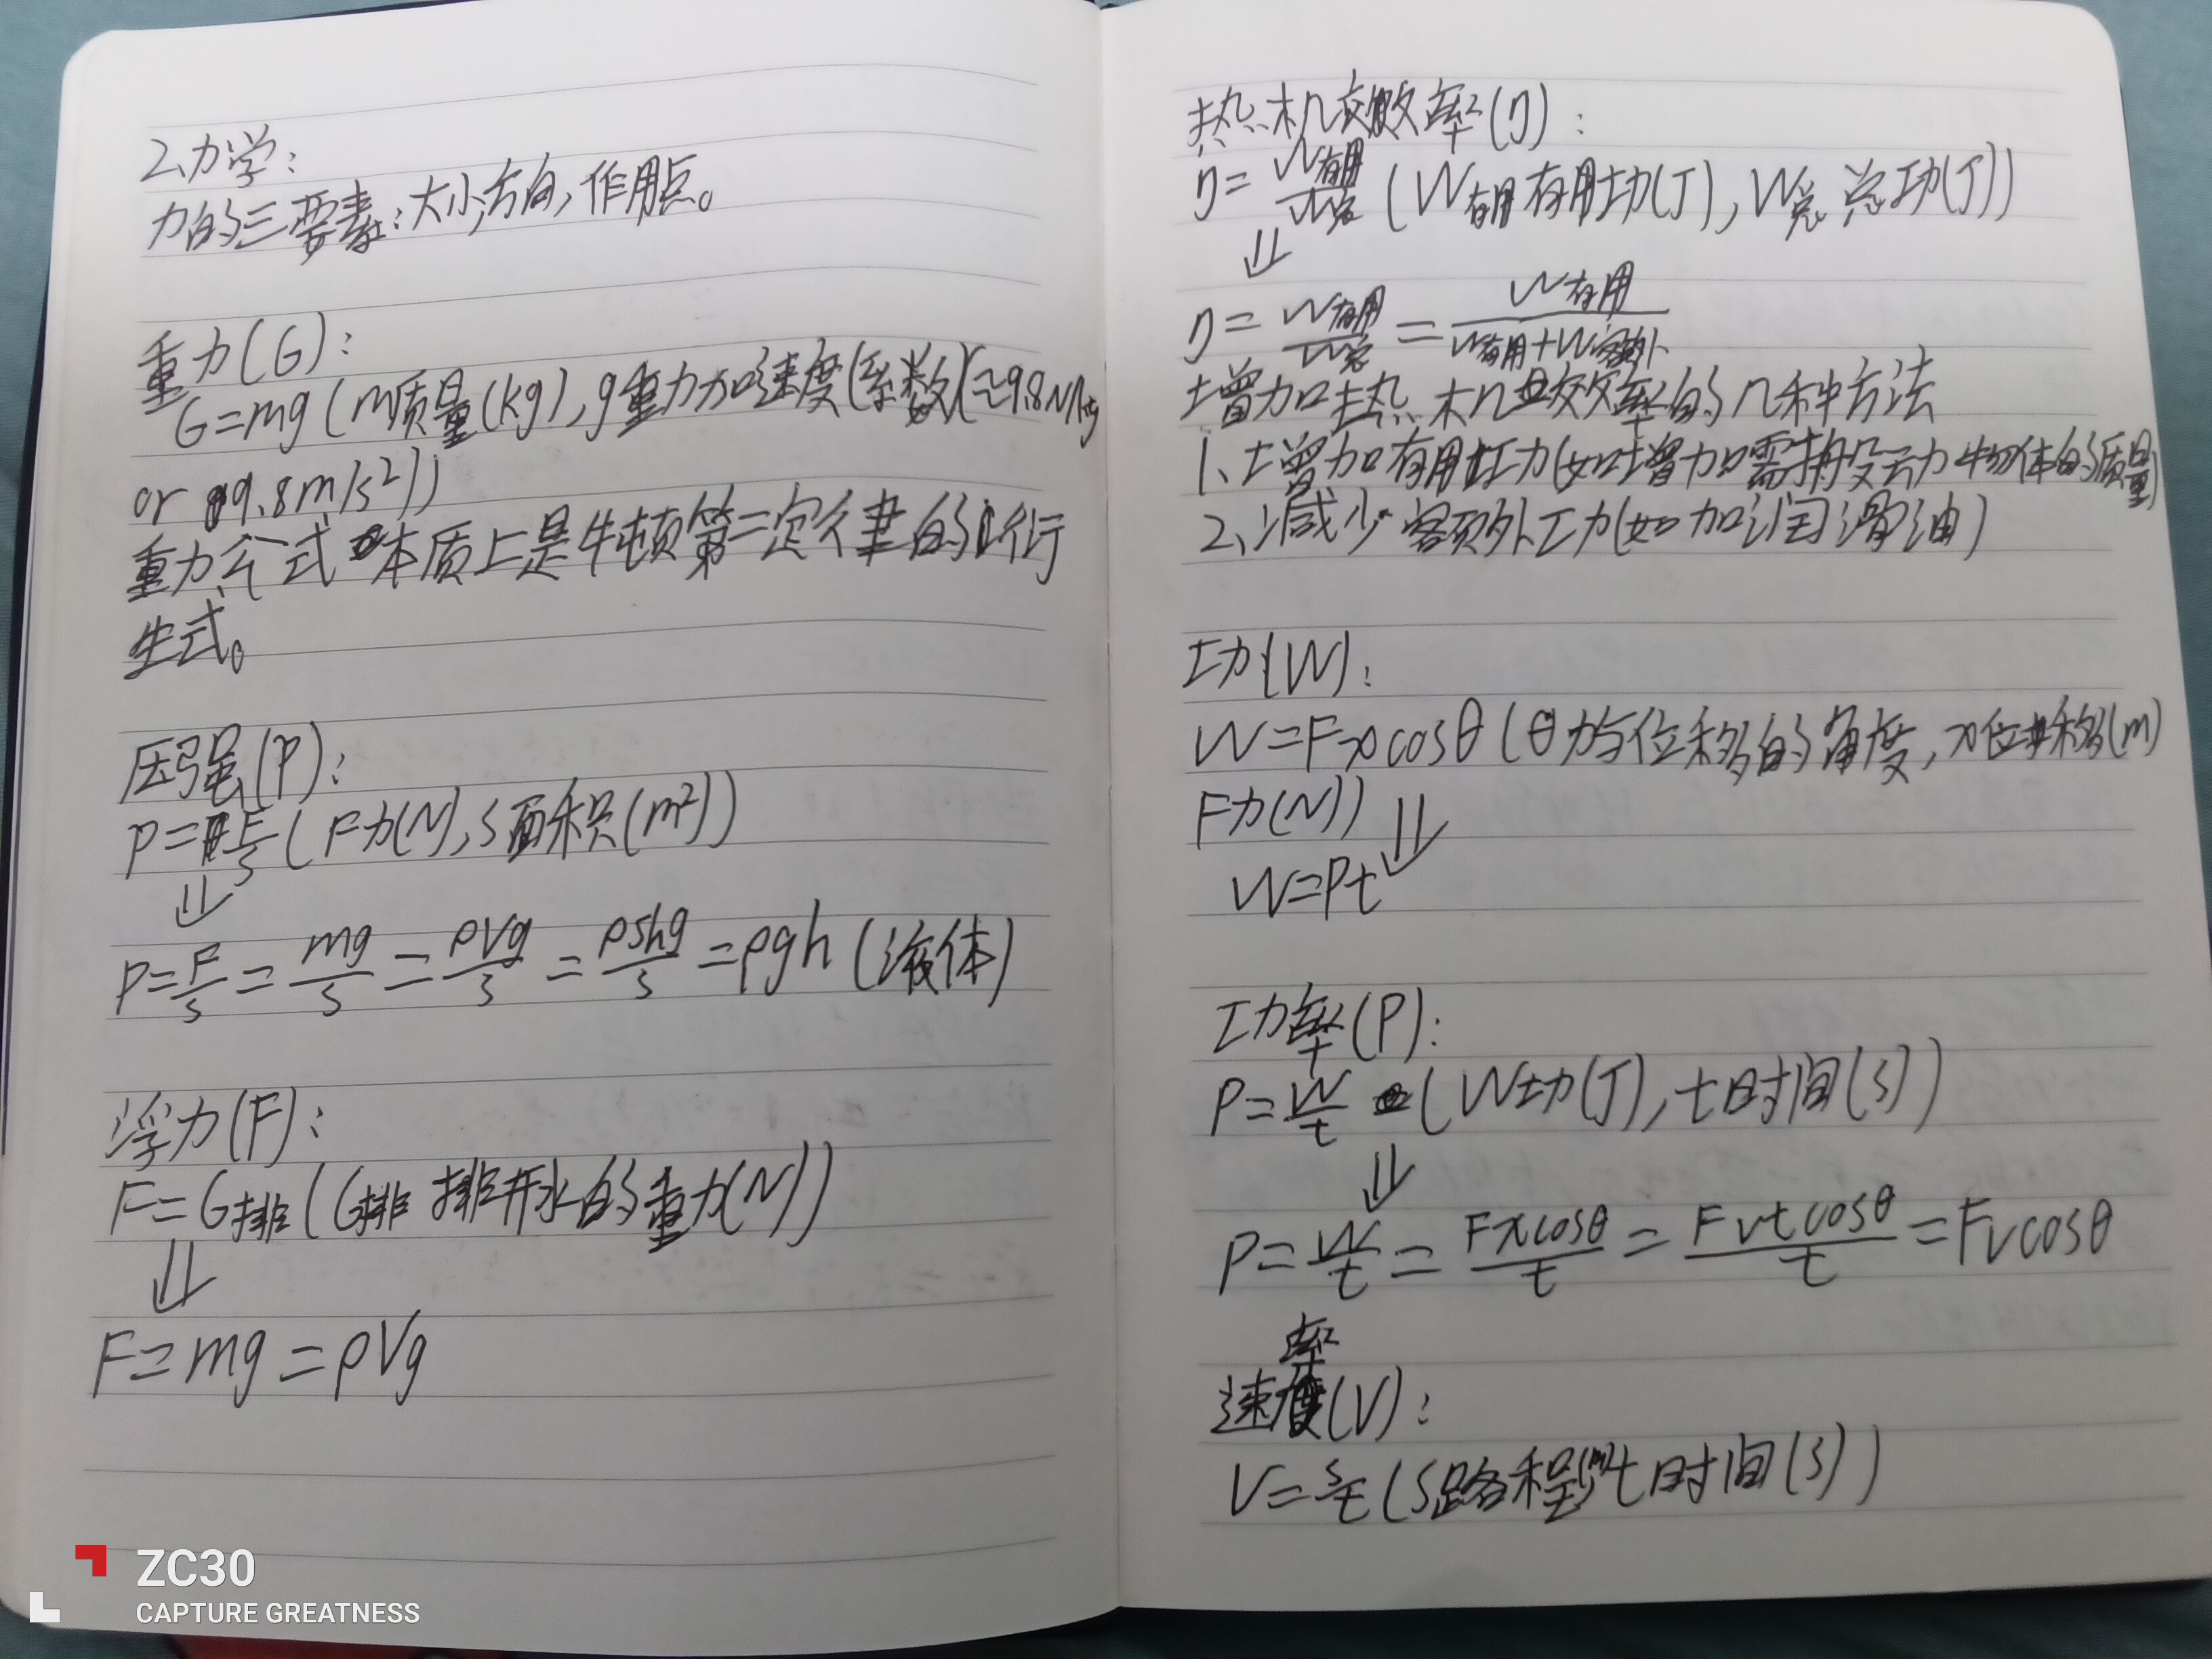 2、力学：
力的三要素：大小，方向，作用点。
重力(G)：
G=mg(m质量(kg),g重力加速度(系数)(≈9.8N/kg
or 9.8m/s²))
重力公式本质上是牛顿第二定律的衍
生式。
压强(P)：
P=F/S(F力(N),S面积(m²))
⇓
P=F/S=mg/S=ρVg/S=ρshg/S=ρgh(液体)
浮力(F)：
F=G排(G排 排开水的重力(N))
⇓
F=mg=ρVg
ZC30
CAPTURE GREATNESS
热机效率(η)：
η=W有用/W总(W有用有用功(J),W总总功(J))
⇓
η=W有用/W总=W有用/W有用+W额外
增加热机效率的几种方法
1、增加有用功(如增加需搬运动物体的质量)
2、减少额外功(如加润滑油)
功(W)：
W=Fxcosθ(θ力与位移的角度,x位移(m)
F力(N))⇓
W=Pt
功率(P)：
P=W/t(W功(J),t时间(s))
⇓
P=W/t=Fxcosθ/t=Fvtcosθ/t=Fvcosθ
速率(V)：
V=s/t(S路程(m)t时间(s))